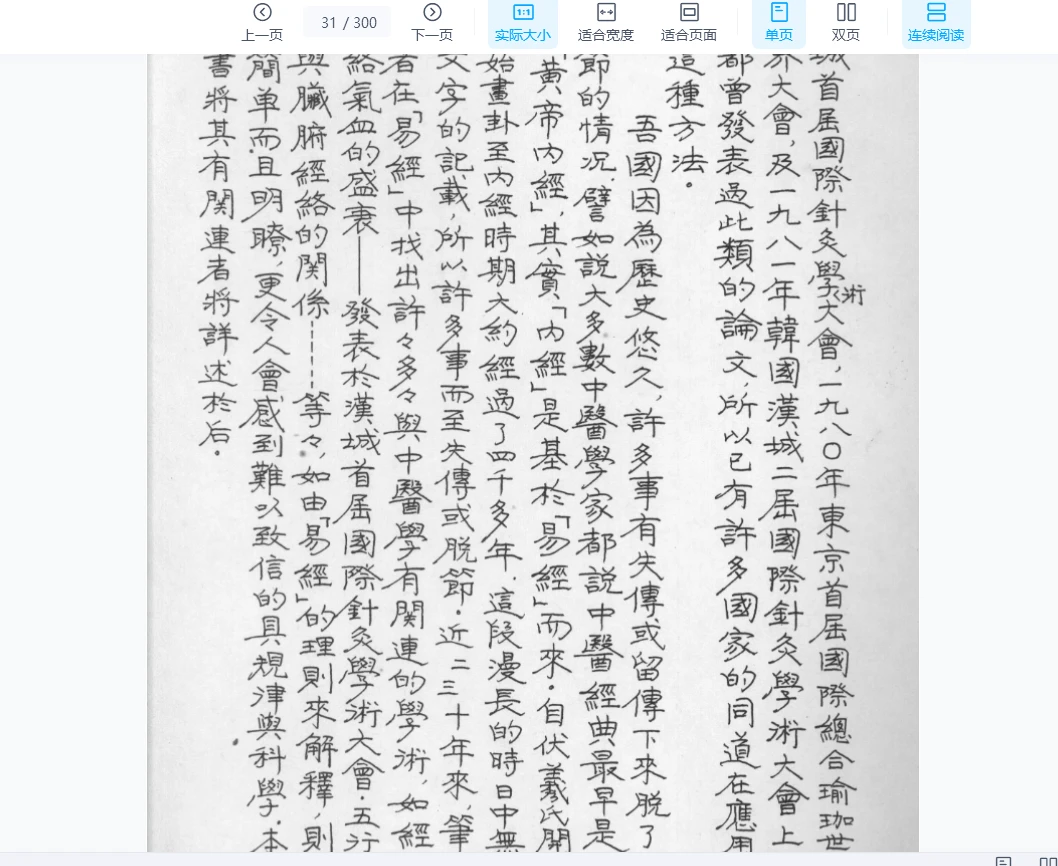 上一页
31 / 300
下一页
1:1
实际大小
适合宽度
适合页面
单页
双页
连续阅读
城首屆國際針灸學術大會，一九八〇年東京首屆國際總合瑜珈世
界大會，及一九八一年韓國漢城二屆國際針灸學術大會上
都曾發表過此類的論文，所以已有許多國家的同道在應用
這種方法。
吾國因為歷史悠久，許多事有失傳或留傳下來脫了
節的情況，譬如說大多數中醫學家都說中醫經典最早是
「黃帝內經」，其實「內經」是基於「易經」而來。自伏羲氏開
始畫卦至內經時期大約經過了四千多年，這段漫長的時日中無
文字的記載，所以許多事而至失傳或脫節。近二三十年來，筆
者在「易經」中找出許々多々與中醫學有関連的學術，如經
絡氣血的盛衰——發表於漢城首屆國際針灸學術大會。五行
與臟腑經絡的関係------等々，如由「易經」的理則來解釋，則
簡单而且明瞭，更令人會感到難以致信的具規律與科學。本
書將其有関連者將詳述於后。